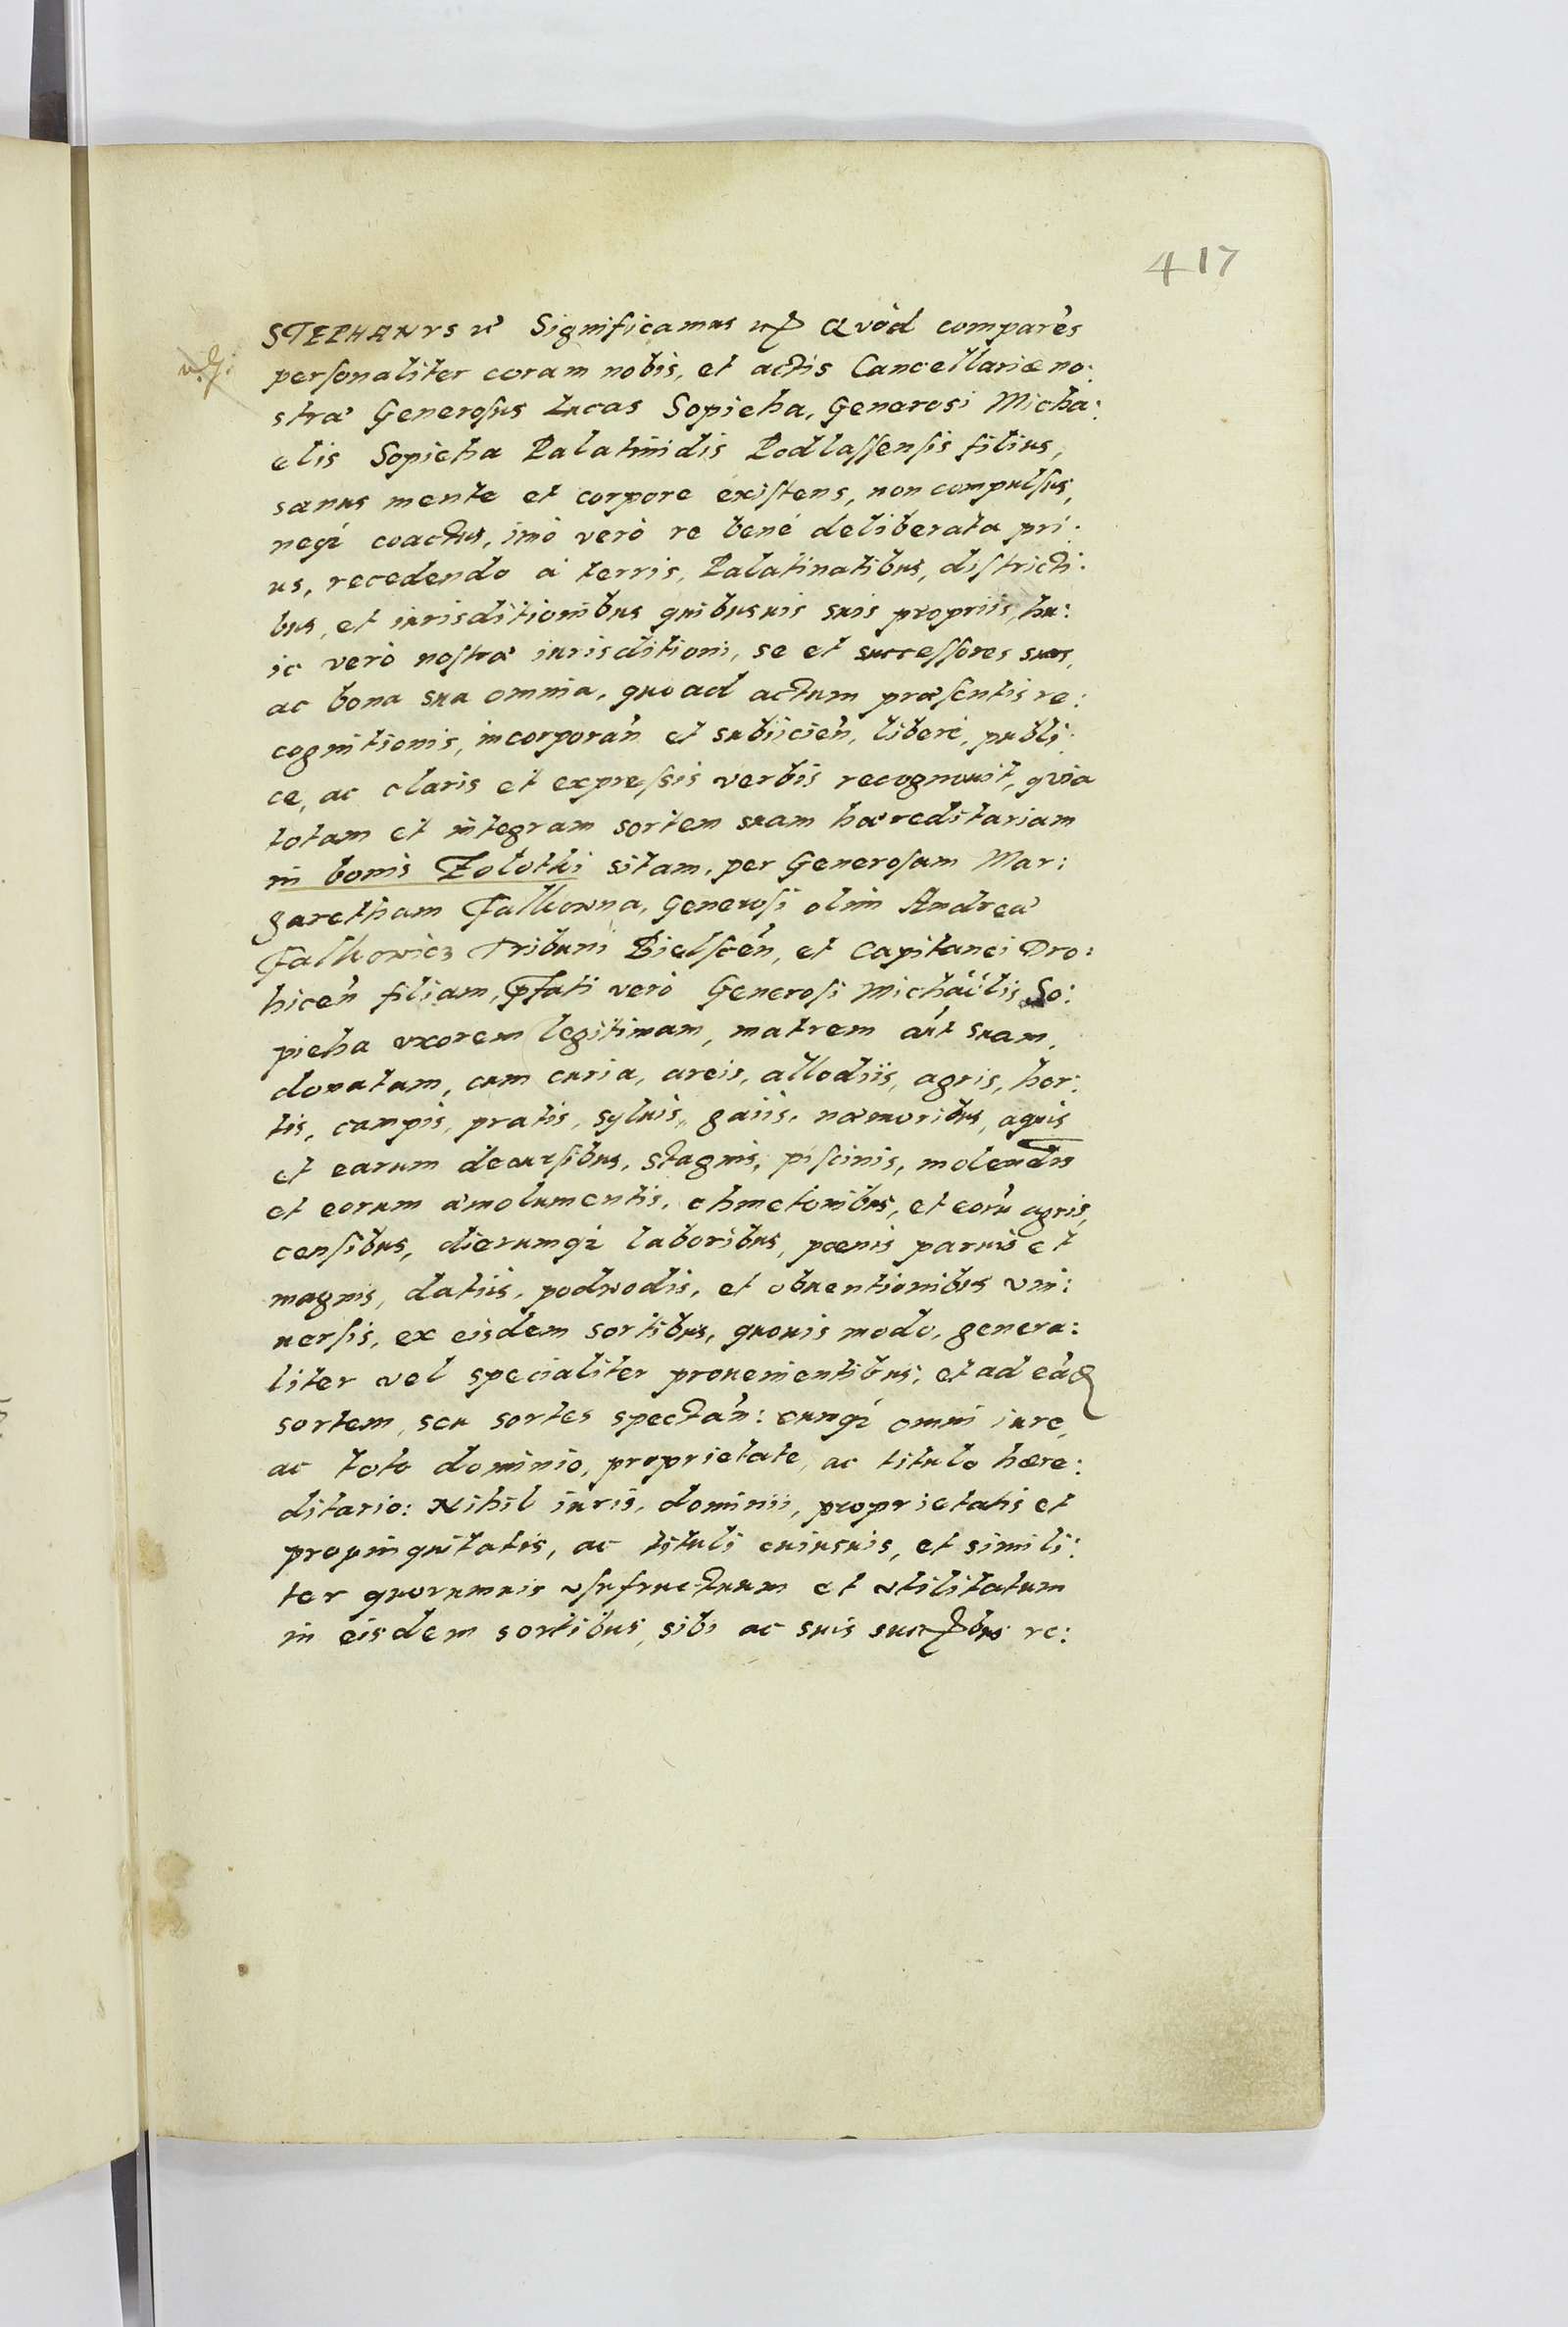 417
STEPHANVS Significamus Quod comparēs
personaliter coram nobis, et actis Cancellariæ no:
stræ Generosus Lucas Sopieha, Generosi Micha:
elis Sopieha Palatinidis Podlassensis filius,
sanus mente et corpore existens, non compulsus,
neqȝ coactus, imò verò re bene deliberata pri:
us, recedendo à terris, Palatinatibus, districti:
bus, et iurisditionibus quibusuis suis propriis, hu:
ic verò nostræ iurisditioni, se et successores suos,
ac bona sua omnia, quo ad actum præsentis re:
cognitionis, incorporan̄ et subiicien̄, liberè, publi:
ce, ac claris et expressis verbis recognouit, quia
totam et integram sortem suam hæreditariam
in bonis Zolothi sitam, per Generosam Mar:
garetham Falkowna, Generosi olim Andreæ
Falkowicz Tribuni Bielscen̄, et Capitanei Dro:
hicen̄ filiam, p̄fati verò Generosi Michaëlis So:
pieha vxorem legitimam, matrem aūt suam,
donatam, cum curia, areis, allodiis, agris, hor:
tis, campis, pratis, syluis, gaiis, næmoribus, aquis
et earum decursibus, stagnis, piscinis, molendis
et eorum æmolumentis, chmetonibus, et eorū agris,
censibus, dierumqȝ laboribus, pœnis paruis et
magnis, datiis, podwodis, et obuentionibus vni:
uersis, ex eisdem sortibus, quouis modo, genera:
liter vel specialiter prouenientibus, et ad eand
sortem, seu sortes spectan̄: cumqȝ omni iure,
ac toto dominio, proprietate, ac titulo hære:
ditario: Nihil iuris, dominii, proprietatis et
propinquitatis, ac tituli cuiusuis, et simili:
ter quorumuis vsufructuum et vtilitatum
in eisdem sortibus, sibi ac suis re: